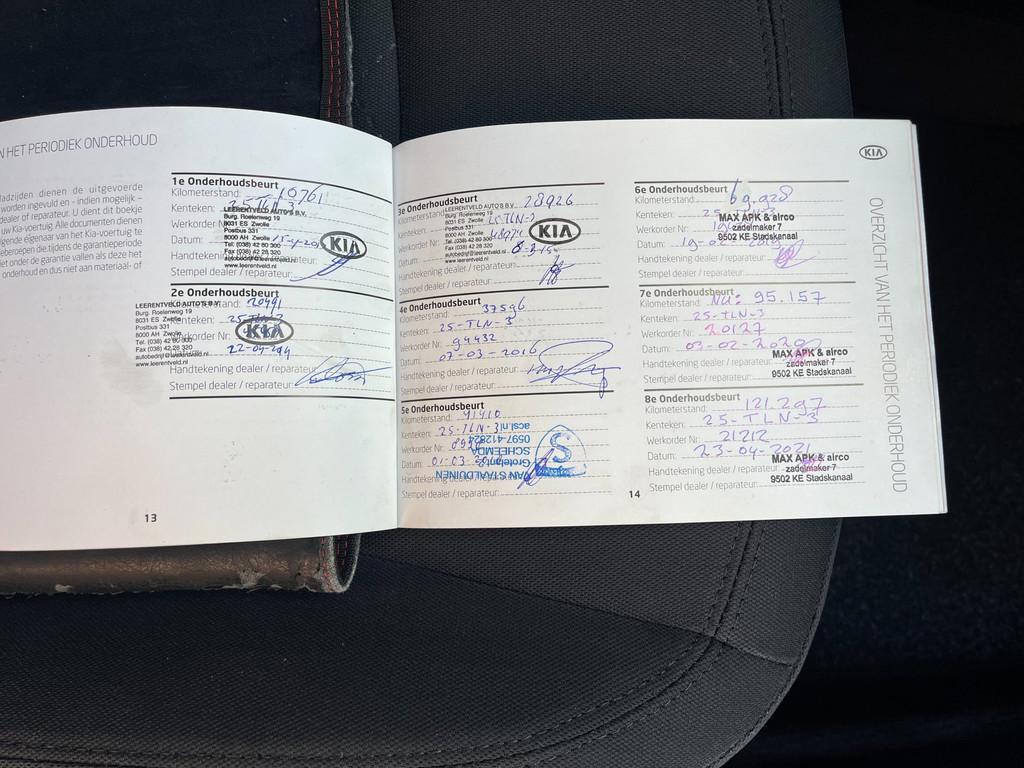 N HET PERIODIEK ONDERHOUD
adzijden dienen de uitgevoerde
worden ingevuld en - indien mogelijk -
dealer of reparateur. U dient dit boekje
uw Kia-voertuig. Alle documenten dienen
gende eigenaar van het Kia-voertuig te
beroepen die tijdens de garantieperiode
iet onder de garantie vallen als deze het
onderhoud en dus niet aan materiaal- of
1e Onderhoudsbeurt
Kilometerstand: 10761
Kenteken: 25-TLN-3
LEERENTVELD AUTO'S B.V.
Burg. Roelenweg 19
8031 ES Zwolle
Postbus 331
8000 AH Zwolle
Tel: (038) 42 80 300
Fax (038) 42 28 320
autobedrijf@leerentveld.nl
www.leerentveld.nl
KIA
Werkorder N
Datum:
Handtekenin
Stempel dealer / reparateur:
2e Onderhoudsbeurt
LEERENTVELD AUTO'S B.V.
Burg. Roelenweg 19
8031 ES Zwolle
Postbus 331
8000 AH Zwolle
Tel. (038) 42 80 300
Fax (038) 42 28 320
autobedrijf@leerentveld.nl
www.leerentveld.nl
stand: 20491
Kenteken:
rkorder Nr:
KIA
Handtekening dealer / reparateur:
Stempel dealer / reparateur:
13
3e Onderhoudsbeurt
Kilometerstand: 28926
LEERENTVELD AUTO'S B.V.
Burg. Roelenweg 19
8031 ES Zwolle
Postbus 331
8000 AH Zwolle
Tel. (038) 42 80 300
Fax (038) 42 28 320
autobedrijf@leerentveld.nl
www.leerentveld.nl
KIA
Kenteken:
Werkorder
Datum:
Handtekening dealer / reparateur:
Stempel dealer / reparateur:
4e Onderhoudsbeurt
Kilometerstand: 37596
Kenteken: 25-TLN-3
Werkorder Nr: 94432
Datum: 07-03-2016
Handtekening dealer / reparateur:
Stempel dealer / reparateur:
5e Onderhoudsbeurt
Kilometerstand: 41410
Kenteken: 25-TLN-3
Werkorder Nr:
Datum: 01-03
Handtekening dealer / reparateur:
Stempel dealer / reparateur:
VAN STAALDUINEN
SCHEEMDA
0597 412824
acsl.nl
S
KIA
6e Onderhoudsbeurt
Kilometerstand: 69.928
Kenteken:
Werkorder Nr:
Datum:
MAX APK & airco
zadelmaker 7
9502 KE Stadskanaal
Handtekening dealer / reparateur:
Stempel dealer / reparateur:
7e Onderhoudsbeurt
Kilometerstand: NU: 95.157
Kenteken: 25-TLN-3
Werkorder Nr: 20127
Datum: 03-02-2020
MAX APK & airco
zadelmaker 7
9502 KE Stadskanaal
Handtekening dealer / reparateur:
Stempel dealer / reparateur:
8e Onderhoudsbeurt
Kilometerstand: 121.297
Kenteken: 25-TLN-3
Werkorder Nr: 21212
Datum: 23-04-2021
MAX APK & airco
zadelmaker 7
9502 KE Stadskanaal
Handtekening dealer / reparateur:
Stempel dealer / reparateur:
14
OVERZICHT VAN HET PERIODIEK ONDERHOUD